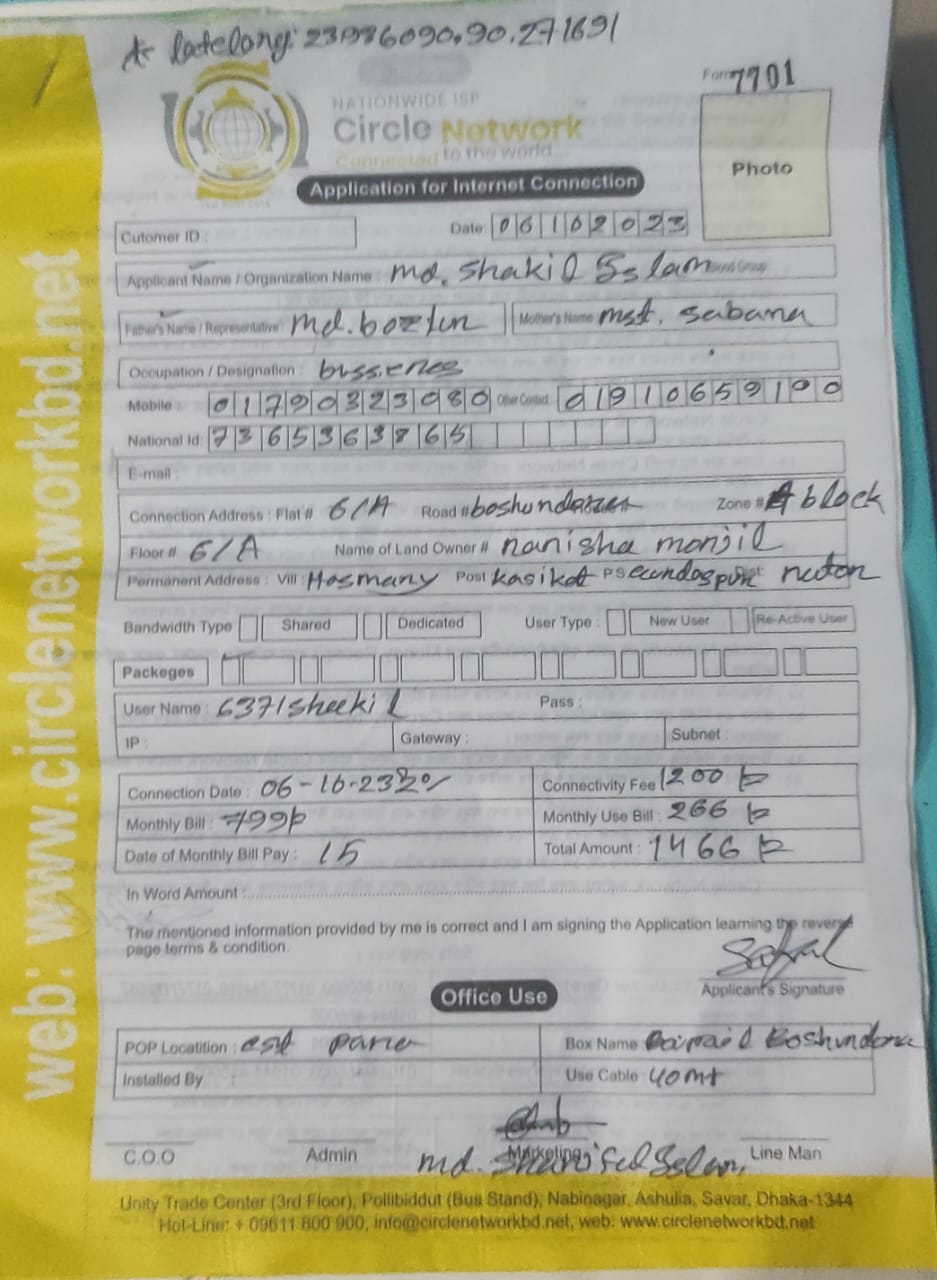 latelong: 23986090,90.271691
Form 7701
NATIONWIDE ISP
Circle Network
Connected to the world
Photo
Application for Internet Connection
Cutomer ID :
Date: 06102023
Applicant Name / Organization Name : md. Shakil Sslam
Father's Name / Representative : md. bozlun
Mother's Name mst. Sabana
Occupation / Designation :
Mobile : 01790323080 Other Contact 01910659190
National Id: 7365363865
E-mail :
Connection Address : Flat # 6/A Road # boshundaraen Zone # A block
Floor # 6/A Name of Land Owner # nanisha monjil
Permanent Address : Vill : Hosmany Post kasikat PS Dist: nator
Bandwidth Type Shared Dedicated User Type : New User Re-Active User
Packeges
User Name : 6371sheekil Pass :
IP : Gateway : Subnet :
Connection Date : 06-10-23 Connectivity Fee 1200
Monthly Bill : 799 Monthly Use Bill : 266
Date of Monthly Bill Pay : 15 Total Amount : 1466
In Word Amount :
The mentioned information provided by me is correct and I am signing the Application learning the reverse
page terms & condition.
Applicant's Signature
Office Use
POP Locatition : Box Name : Boshundora
Installed By : Use Cable : 40mt
C.O.O Admin Marketing Line Man
md. Shariful Sslam
Unity Trade Center (3rd Floor), Pollibiddut (Bus Stand), Nabinagar, Ashulia, Savar, Dhaka-1344
Hot-Line: + 09611 800 900, info@circlenetworkbd.net, web: www.circlenetworkbd.net
web: www.circlenetworkbd.net